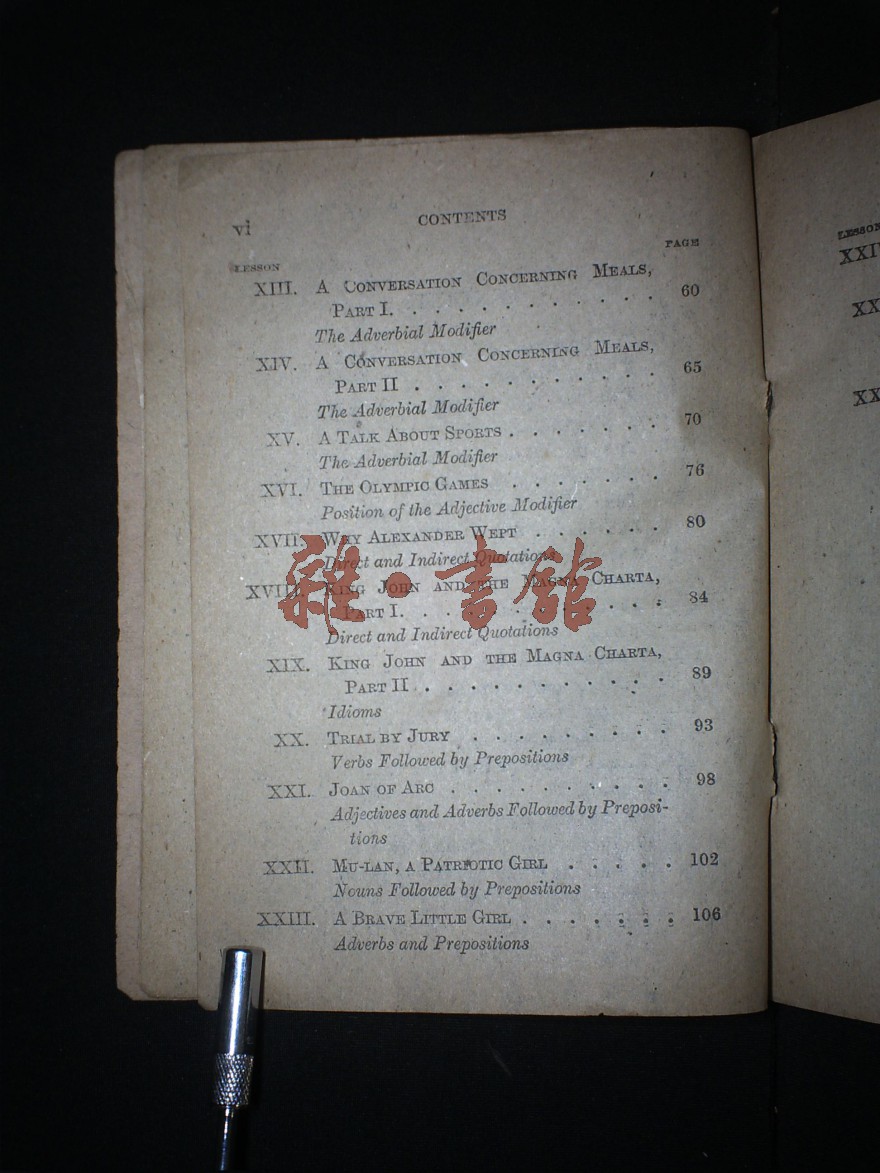 vi
CONTENTS
LESSON
PAGE
XIII. A CONVERSATION CONCERNING MEALS,
PART I. . . . . . . . . . . . 60
The Adverbial Modifier
XIV. A CONVERSATION CONCERNING MEALS,
PART II . . . . . . . . . . . 65
The Adverbial Modifier
XV. A TALK ABOUT SPORTS . . . . . . . 70
The Adverbial Modifier
XVI. THE OLYMPIC GAMES . . . . . . . 76
Position of the Adjective Modifier
XVII. WHY ALEXANDER WEPT . . . . . . 80
Direct and Indirect Quotations
XVIII. KING JOHN AND THE MAGNA CHARTA,
PART I. . . . . . . . . . . . 84
Direct and Indirect Quotations
XIX. KING JOHN AND THE MAGNA CHARTA,
PART II . . . . . . . . . . . 89
Idioms
XX. TRIAL BY JURY . . . . . . . . . 93
Verbs Followed by Prepositions
XXI. JOAN OF ARC . . . . . . . . . . 98
Adjectives and Adverbs Followed by Preposi-
tions
XXII. MU-LAN, A PATRIOTIC GIRL . . . . . 102
Nouns Followed by Prepositions
XXIII. A BRAVE LITTLE GIRL . . . . . . . 106
Adverbs and Prepositions
雜·書館
LESSON